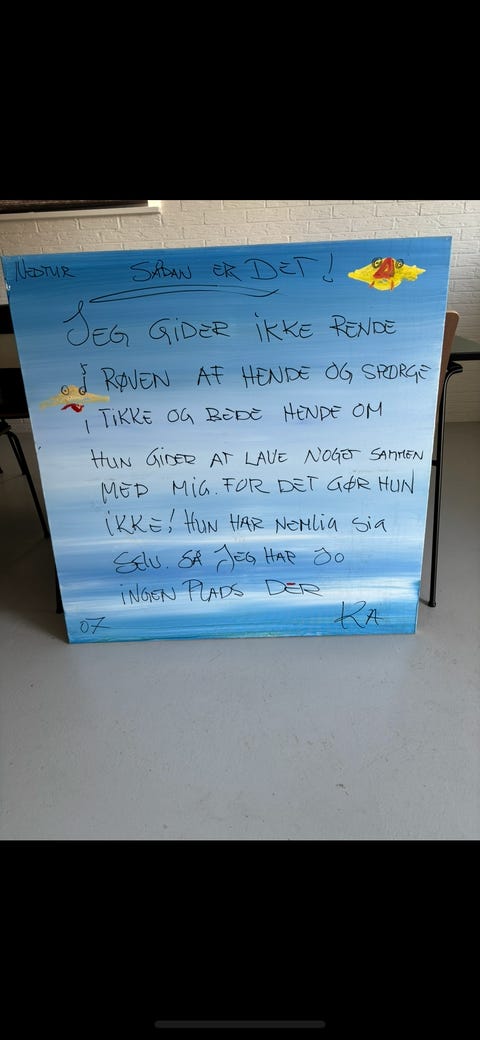 NEDTUR SÅDAN ER DET!
JEG GIDER IKKE RENDE
I RØVEN AF HENDE OG SPØRGE
TIKKE OG BEDE HENDE OM
HUN GIDER AT LAVE NOGET SAMMEN
MED MIG. FOR DET GØR HUN
IKKE! HUN HAR NEMLIG SIG
SELV. SÅ JEG HAR JO
INGEN PLADS DER
07 KA